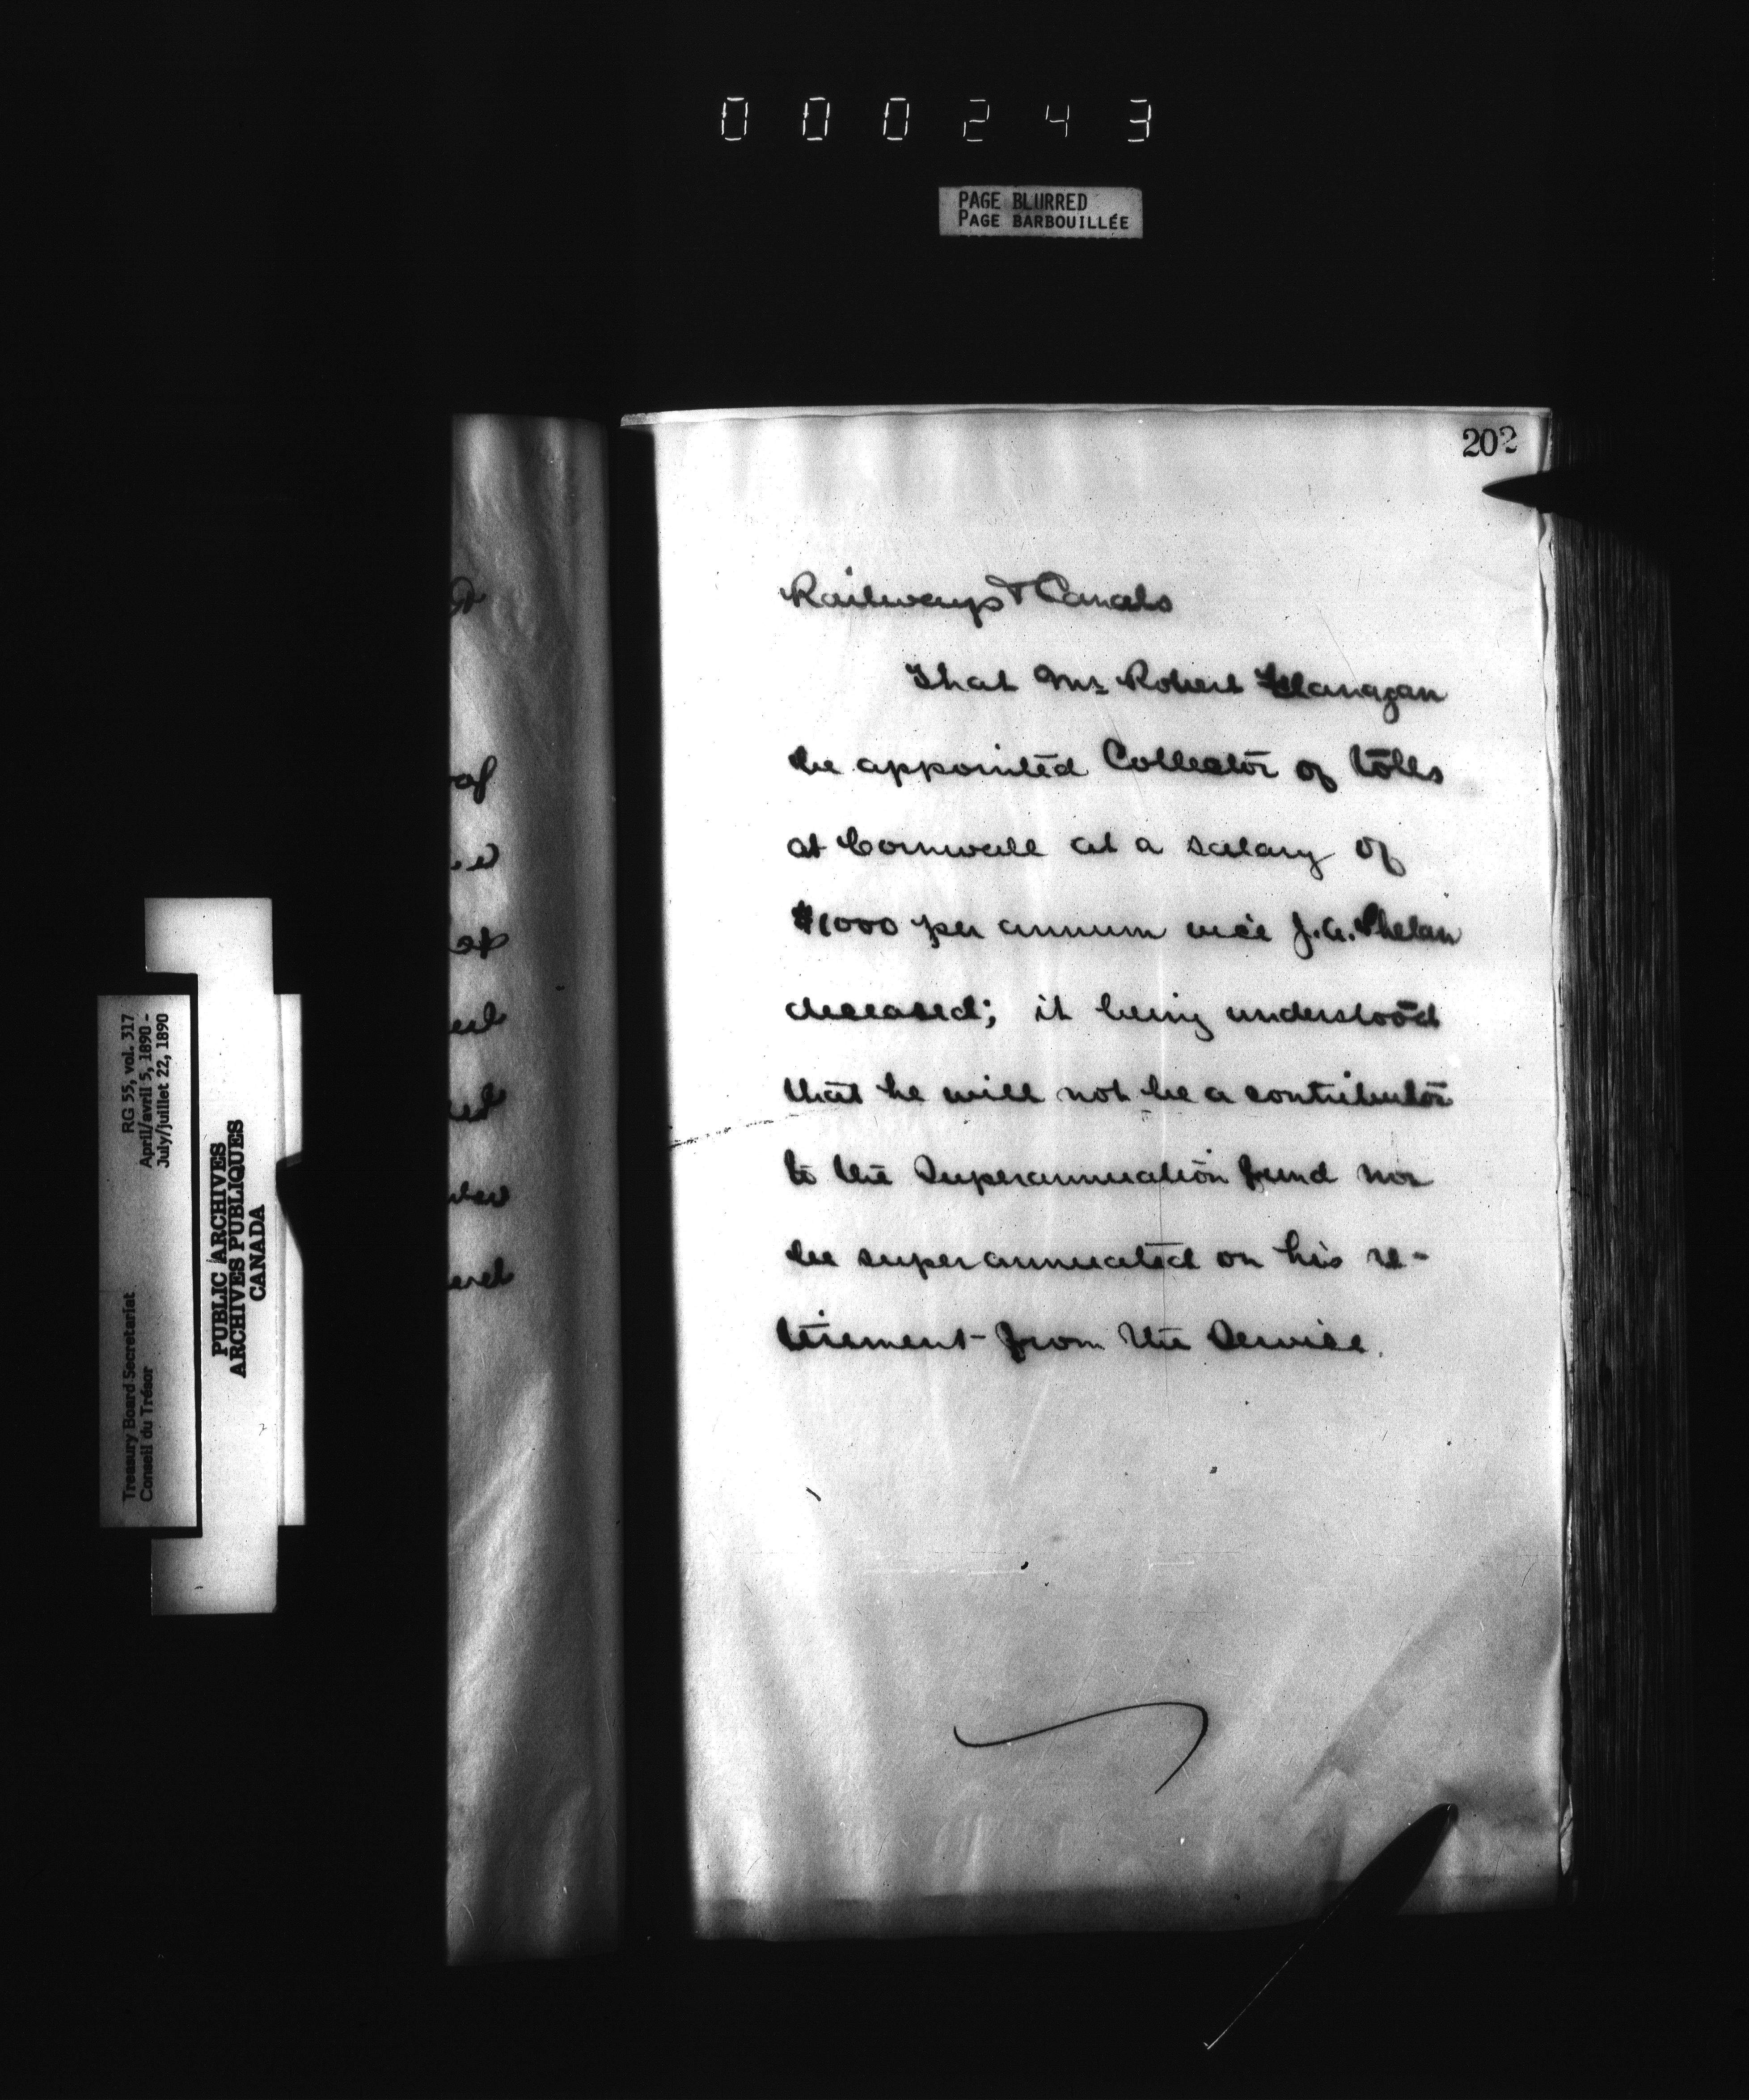 000243
PAGE BLURRED
PAGE BARBOUILLÉE
202
Railways & Canals
That Mr Robert Flanagan
be appointed Collector of tolls
at Cornwall at a salary of
$1000 per annum vice J.A. Phelan
deceased; it being understood
that he will not be a contributor
to the Superannuation fund nor
be superannuated on his re-
tirement from the Service.
RG 55, vol. 317
April/avril 5, 1890 -
July/juillet 22, 1890
Treasury Board Secretariat
Conseil du Trésor
PUBLIC ARCHIVES
ARCHIVES PUBLIQUES
CANADA